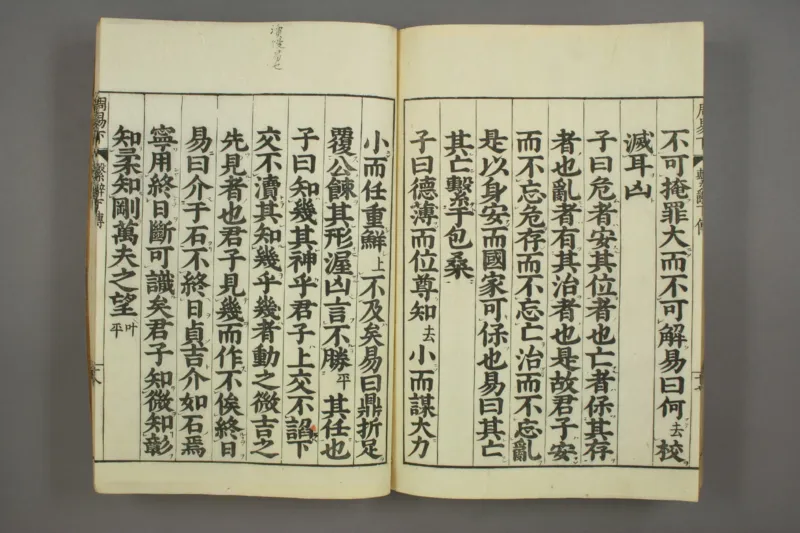 不可掩罪大而不可解易曰何去校
滅耳凶
子曰危者安其位者也亡者保其存
者也亂者有其治者也是故君子安
而不忘危存而不忘亡治而不忘亂
是以身安而國家可保也易曰其亡
其亡繫于包桑
子曰德薄而位尊知去小而謀大力
小而任重鮮上不及矣易曰鼎折足
覆公餗其形渥凶言不勝平其任也
子曰知幾其神乎君子上交不諂下
交不瀆其知幾乎幾者動之微吉之
先見者也君子見幾而作不俟終日
易曰介于石不終日貞吉介如石焉
寧用終日斷可識矣君子知微知彰
知柔知剛萬夫之望叶平
周易下
繫辭下傳